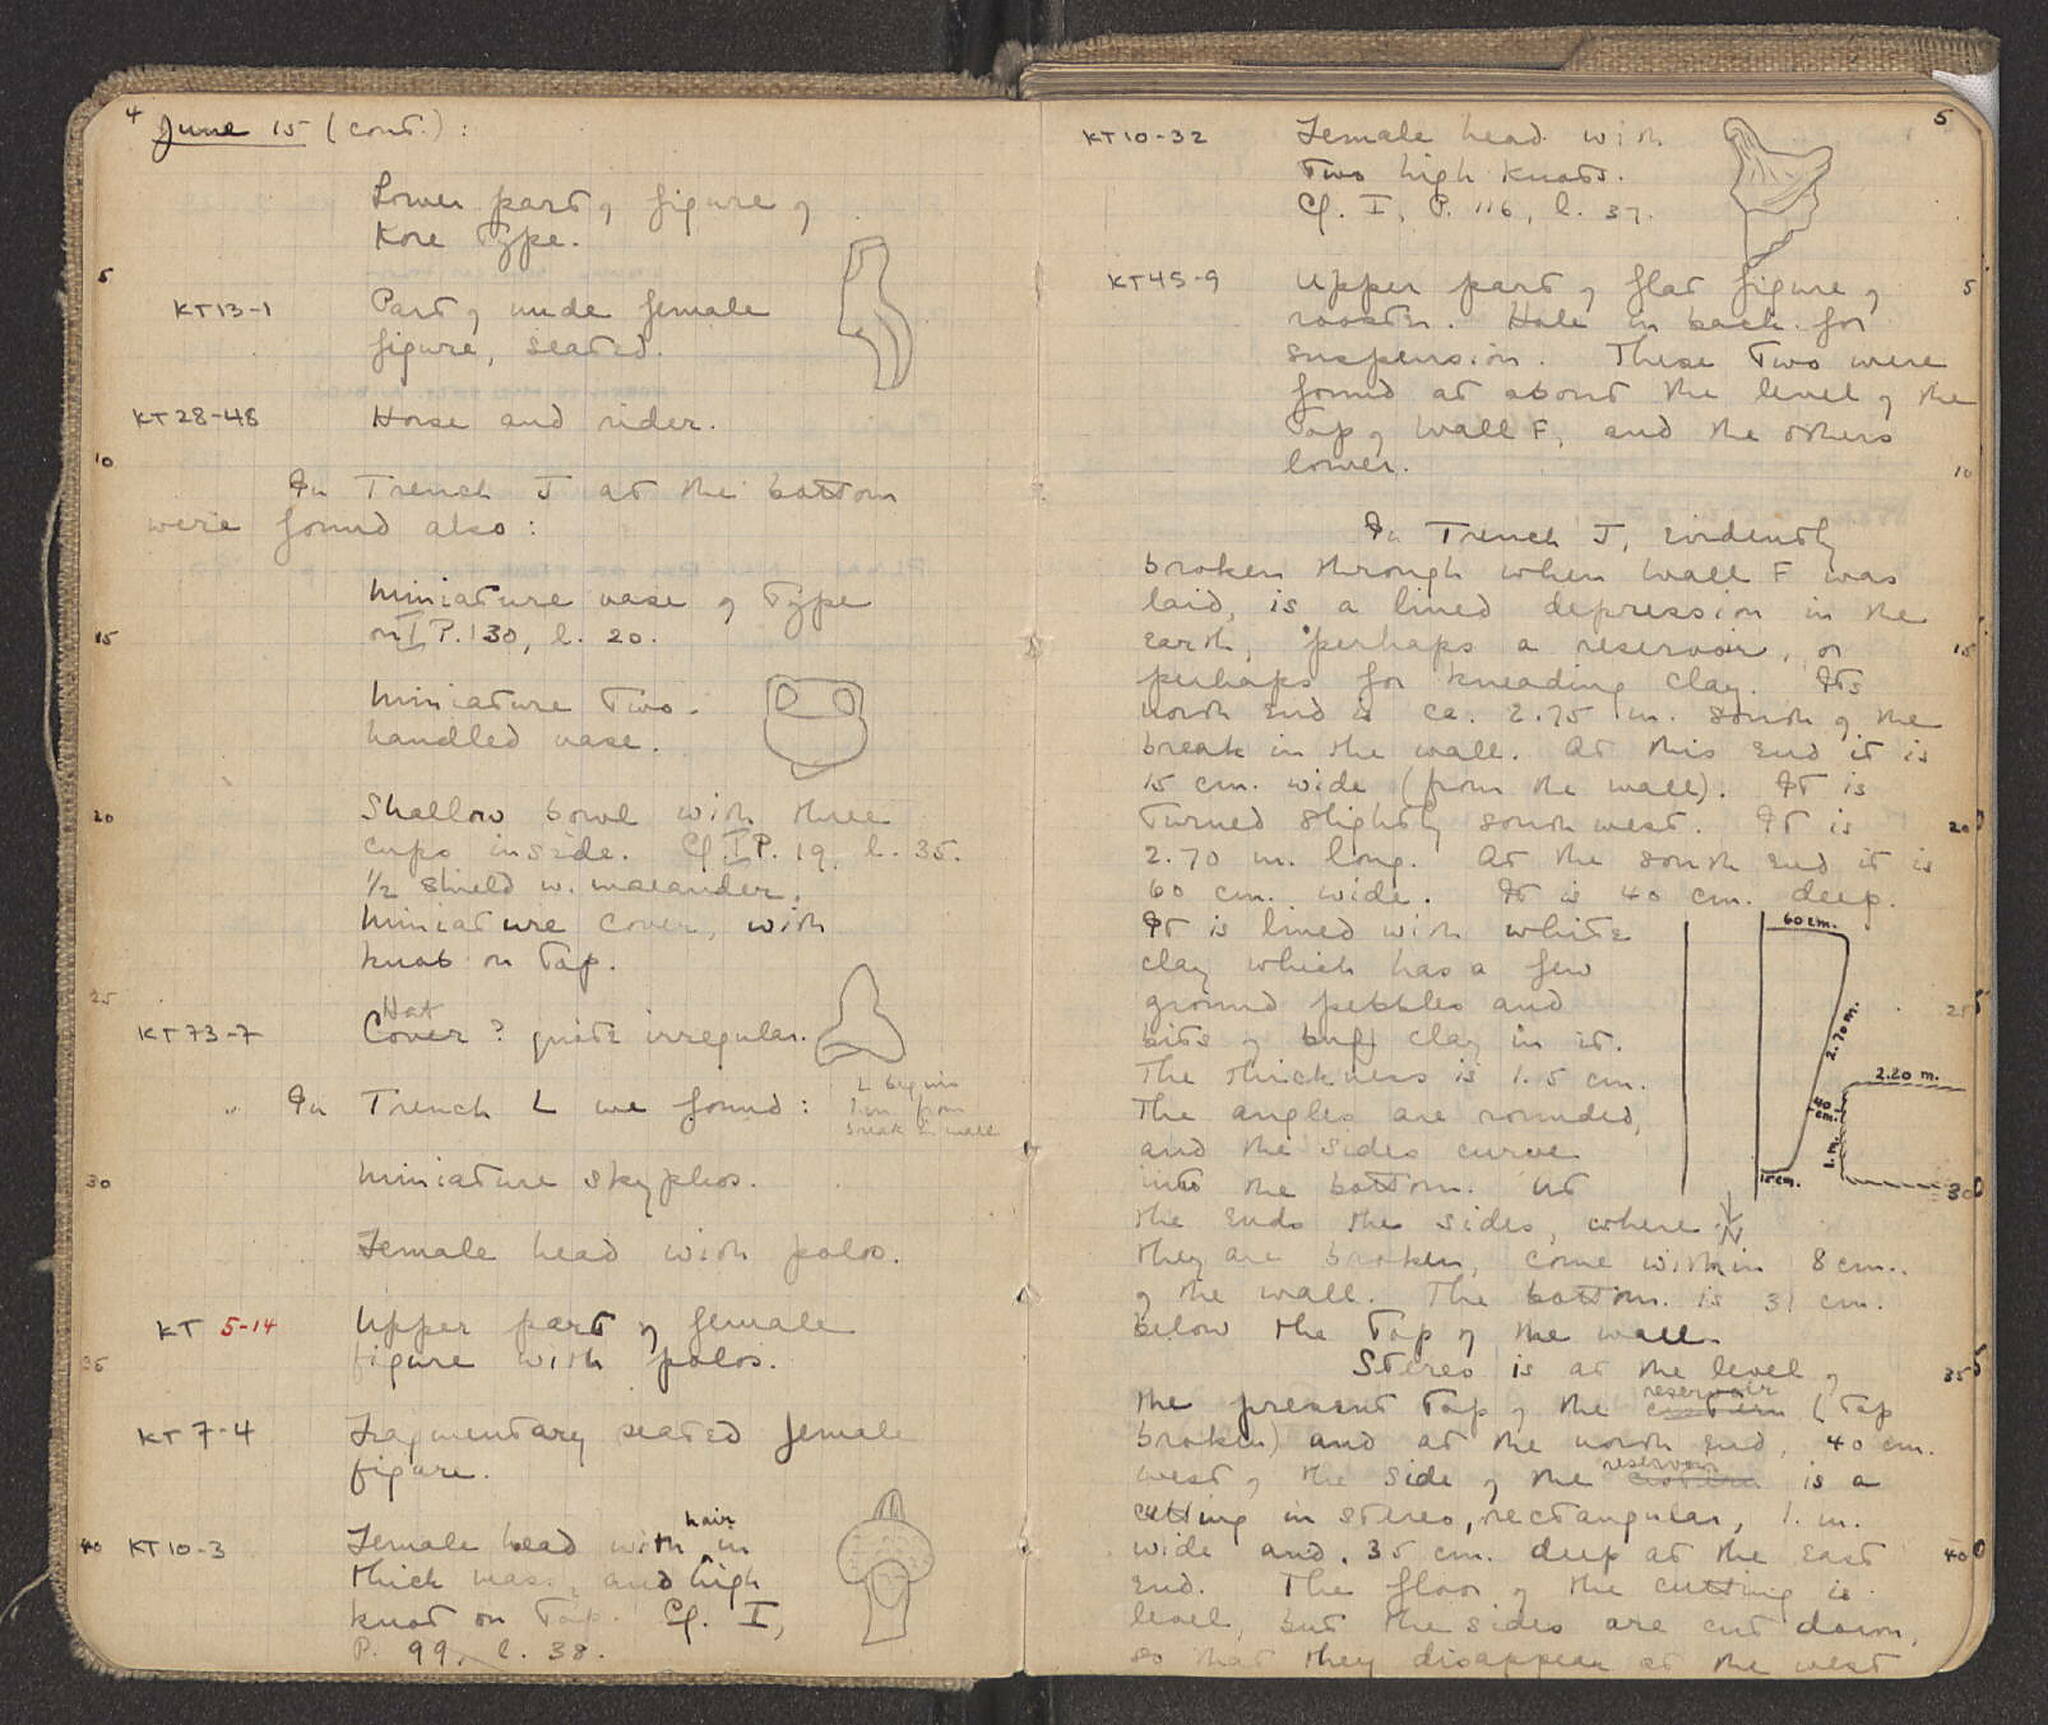 4
June 15 (cont.):
Lower part of figure of
Kore Type.
5
KT13-1 Part of nude female
figure, seated.
KT28-48 Horse and rider.
10
In Trench J at the bottom
were found also:
Miniature vase of Type
15 on I P. 130, l. 20.
Miniature Two-
handled vase.
20 Shallow bowl with three
cups inside. Cf. I P. 19, l. 35.
1/2 shield w. maeander.
Miniature cover, with
knob on Top.
25 Hat
KT73-7 Cover? quite irregular.
In Trench L we found:
L begins
1 m from
break in wall
30 Miniature skyphos.
Female head with polos.
KT 5-14 Upper part of female
35 figure with polos.
KT 7-4 Fragmentary seated female
figure.
hair
40 KT10-3 Female head with in
thick mass, and high
knot on Top. Cf. I,
P. 99, l. 38.
5
KT10-32 Female head with
Two high knots.
Cf. I, P. 116, l. 37.
KT45-9 Upper part of flat figure of 5
rooster. Hole in back for
suspension. These Two were
found at about the level of the
Top of Wall F, and the others
lower. 10
In Trench J, evidently
broken through when Wall F was
laid, is a lined depression in the
earth, perhaps a reservoir, or 15
perhaps for kneading clay. Its
north end is ca. 2.75 m. south of the
break in the wall. At this end it is
15 cm. wide (from the wall). It is
Turned slightly south west. It is 20
2.70 m. long. At the south end it is
60 cm. wide. It is 40 cm. deep.
It is lined with white
clay which has a few
ground pebbles and 25
bits of buff clay in it.
The thickness is 1.5 cm.
The angles are rounded,
and the sides curve
into the bottom. At 30
the ends the sides, where
they are broken, come within 8 cm.
of the wall. The bottom is 31 cm.
below the Top of the wall.
60 cm.
2.70 m.
2.20 m.
40 cm.
1. m.
15 cm.
N
Stereo is at the level of 35
reservoir
the present Top of the cistern (Top
broken) and at the north end, 40 cm.
reservoir
west of the side of the cistern is a
cutting in stereo, rectangular, 1. m.
wide and .35 cm. deep at the east 40
end. The floor of the cutting is
level, but the sides are cut down,
so that they disappear at the west